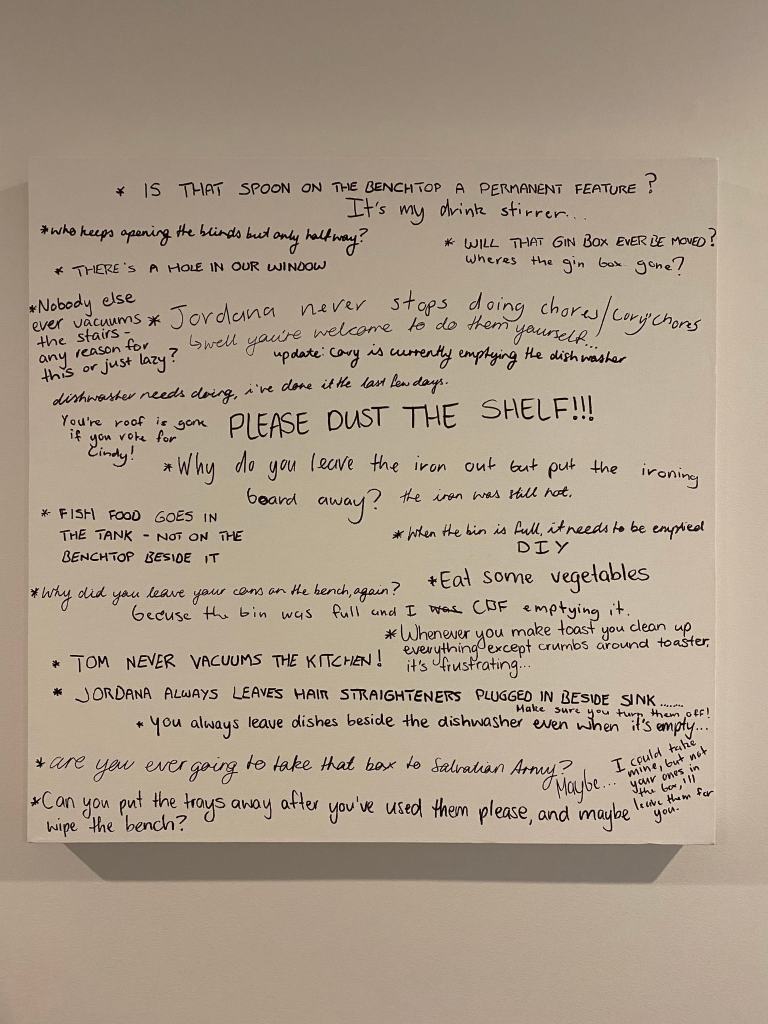 * IS THAT SPOON ON THE BENCHTOP A PERMANENT FEATURE?
It's my drink stirrer...
*who keeps opening the blinds but only half way?
* WILL THAT GIN BOX EVER BE MOVED?
wheres the gin box gone?
* THERE'S A HOLE IN OUR WINDOW
*Nobody else
ever vacuums
the stairs -
any reason for
this or just lazy?
* Jordana never stops doing chores/Cory'chores
↳well you're welcome to do them yourself...
update: Cory is currently emptying the dishwasher
dishwasher needs doing, i've done it the last few days.
You're roof is gone
if you vote for
Cindy!
PLEASE DUST THE SHELF!!!
*Why do you leave the iron out but put the ironing
board away? the iron was still hot.
* FISH FOOD GOES IN
THE TANK - NOT ON THE
BENCHTOP BESIDE IT
* when the bin is full, it needs to be emptied
DIY
*Why did you leave your cans on the bench, again?
becuse the bin was full and I was CBF emptying it.
*Eat some vegetables
*Whenever you make toast you clean up
everything except crumbs around toaster,
it's frustrating...
* TOM NEVER VACUUMS THE KITCHEN!
* JORDANA ALWAYS LEAVES HAIR STRAIGHTENERS PLUGGED IN BESIDE SINK.......
Make sure you turn them off!
* you always leave dishes beside the dishwasher even when it's empty...
*are you ever going to take that box to Salvation Army?
Maybe...
I could take
mine, but not
your ones in
the box, i'll
leave them for
you.
*Can you put the trays away after you've used them please, and maybe
wipe the bench?